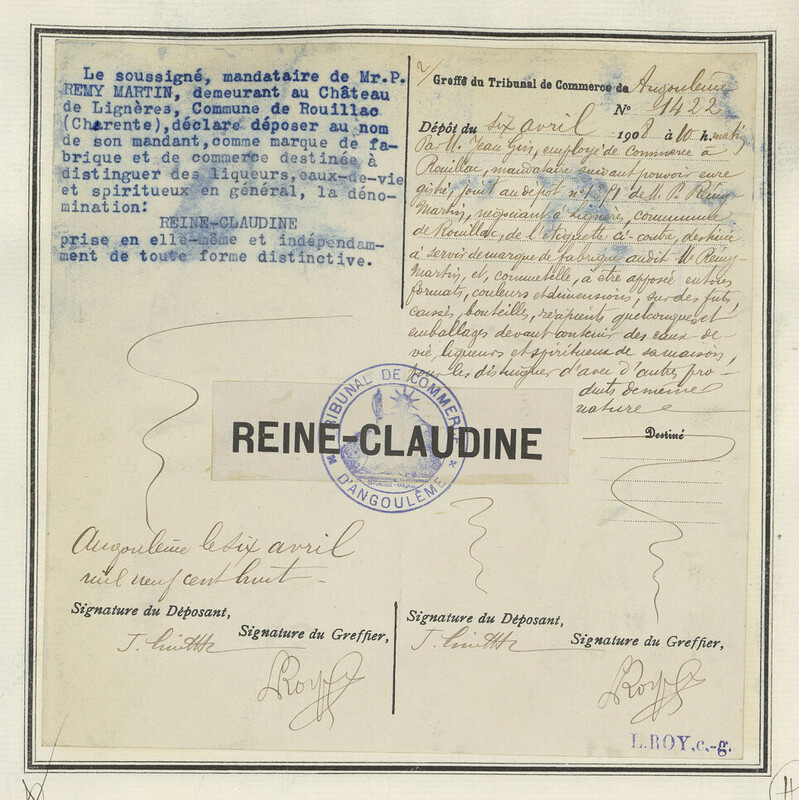 Le soussigné, mandataire de Mr.P.
REMY MARTIN, demeurant au Château
de Lignères, Commune de Rouillac
(Charente),déclare déposer au nom
de son mandant,comme marque de fa-
brique et de commerce destinée à
distinguer des liqueurs,eaux-de-vie
et spiritueux en général, la déno-
mination:
REINE-CLAUDINE
prise en elle-même et indépendam-
ment de toute forme distinctive.
Greffe du Tribunal de Commerce de Angoulême
N° 1422
Dépôt du six avril 1908 à 10 h. matin
Par M. Jean Guy, employé de commerce à
Rouillac, mandataire suivant pouvoir enre
gistré, joint au dépôt n° de M. P. Rémy-
Martin, négociant à Lignères, commune
de Rouillac, de l'étiquette ci-contre, destinée
à servir de marque de fabrique audit M. Rémy-
Martin, et, comme telle, à être apposée en tous
formats, couleurs et dimensions, sur des fûts,
caisses, bouteilles, récipients quelconques et
emballages devant contenir des eaux-de-
vie, liqueurs et spiritueux de sa maison,
pour les distinguer d'avec d'autres pro-
duits de même
nature
Destiné
REINE-CLAUDINE
TRIBUNAL DE COMMERCE
D'ANGOULÊME
Angoulême le six avril
mil neuf cent huit
Signature du Déposant,
Signature du Greffier,
Roy
Signature du Déposant,
Signature du Greffier,
Roy
L.ROY,c.-g.